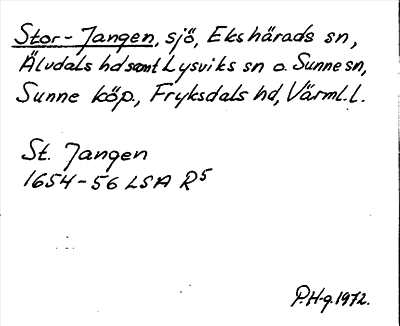 Stor-Jangen, sjö, Ekshärads sn,
Älvdals hd samt Lysviks sn o. Sunne sn,
Sunne köp., Fryksdals hd, Värml.l.
St. Jangen
1654-56 LSA R5
P.H-g. 1972.